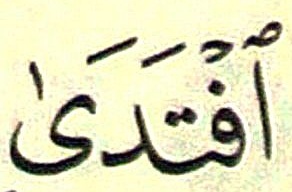 ٱفْتَدَىٰ